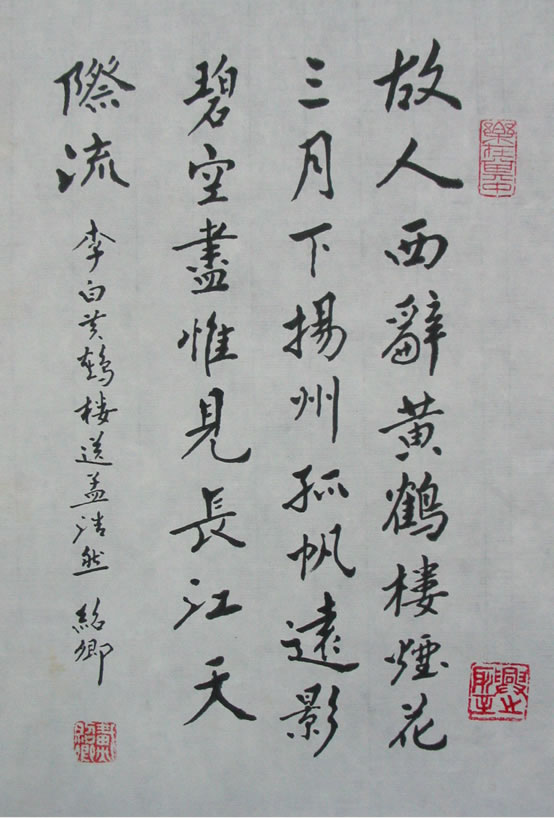 故人西辭黃鶴楼煙花
三月下揚州孤帆遠影
碧空盡惟見長江天
際流
李白黄鶴楼送孟浩然 紹卿
樂在其中